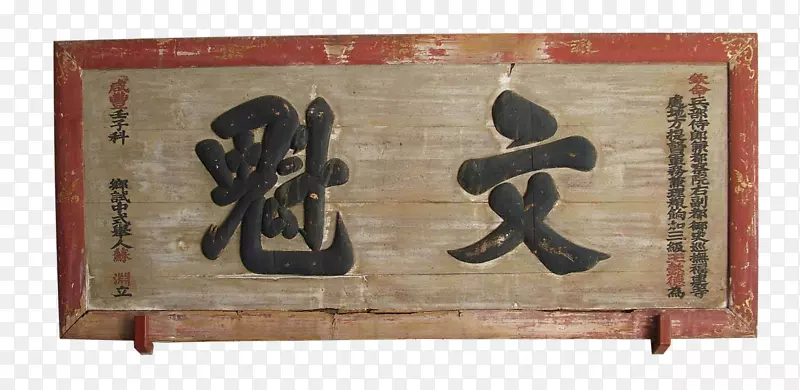 欽命兵部侍郎兼都察院右副都御史巡撫福建等
處地方提督軍務兼理糧餉加三級王懿德為
文魁
咸豐壬子科
鄉試中式舉人蘇 淵立